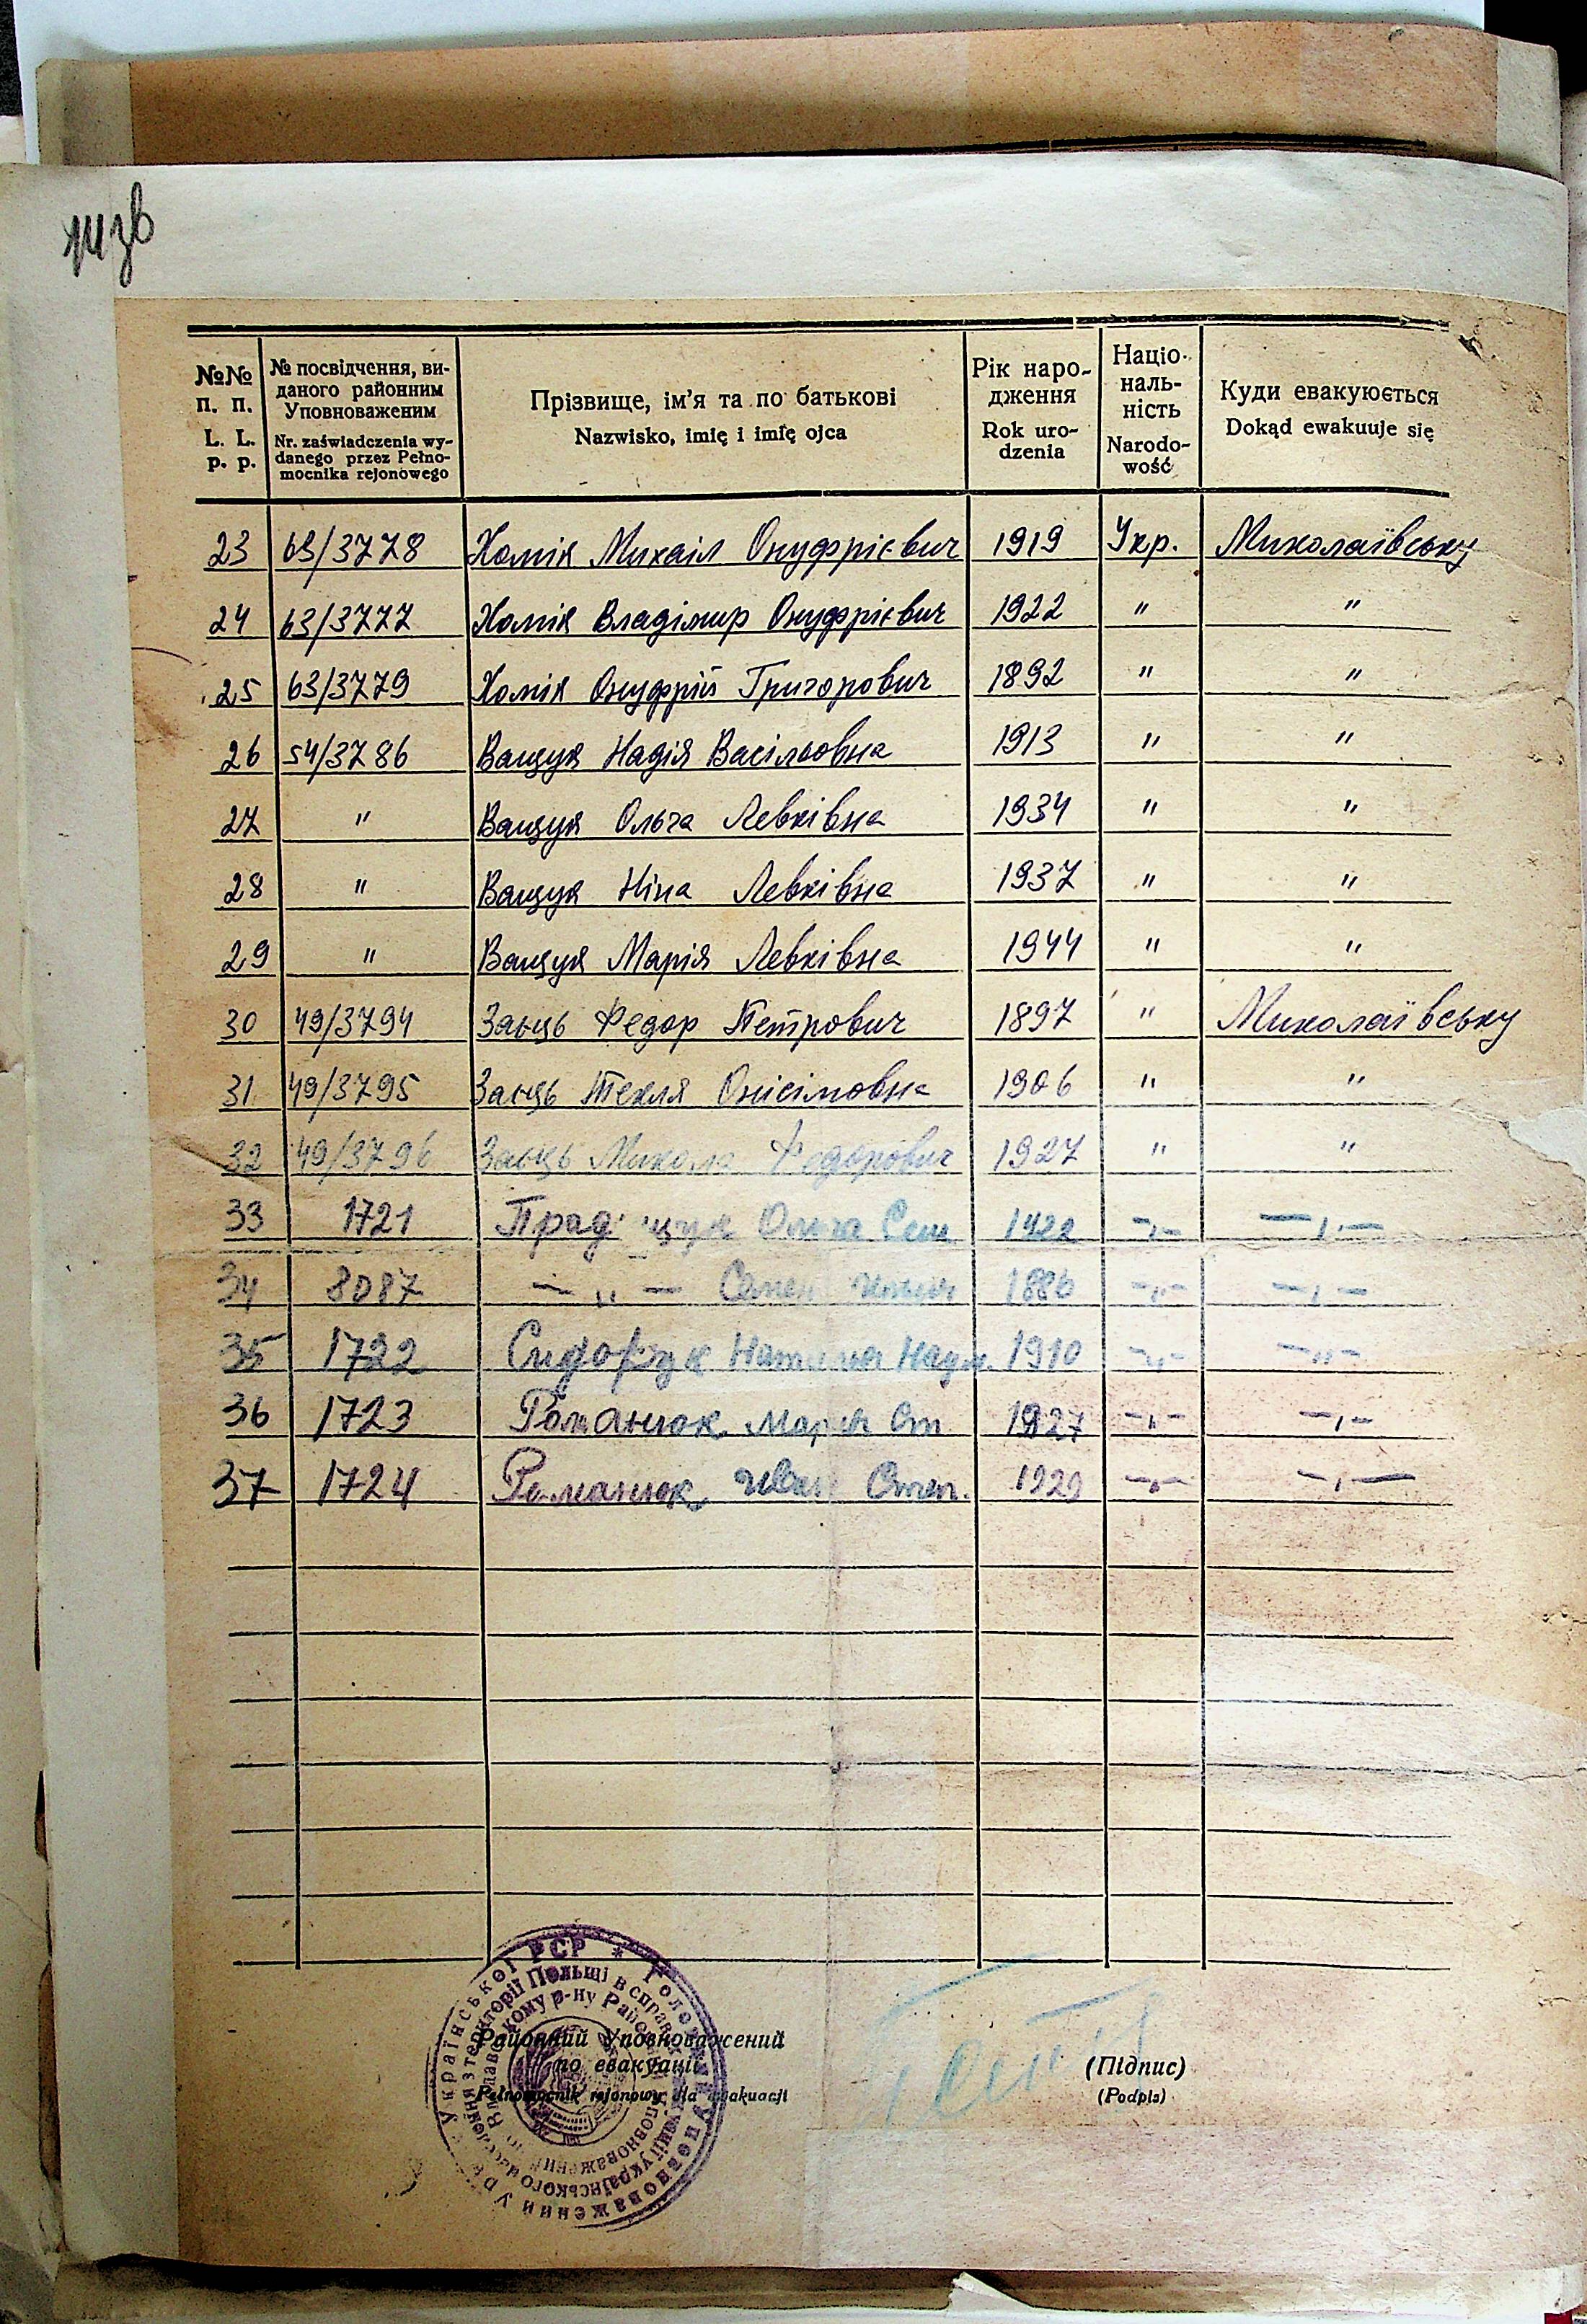 №№ п. п.
L. L. p. p.
№ посвідчення, ви-
даного районним
Уповноваженим
Nr. zaświadczenia wy-
danego przez Pełno-
mocnika rejonowego
Прізвище, ім'я та по батькові
Nazwisko, imię i imię ojca
Рік наро-
дження
Rok uro-
dzenia
Націо-
наль-
ність
Narodo-
wość
Куди евакуюється
Dokąd ewakuuje się
23 63/3778 Хомік Михаіл Онуфрієвич 1919 Укр. Миколаївську
24 63/3777 Хомік Владімир Онуфрієвич 1922 " "
25 63/3779 Хомік Онуфрій Григорович 1892 " "
26 54/3786 Ващук Надія Васільовна 1913 " "
27 " Ващук Ольга Левківна 1934 " "
28 " Ващук Ніна Левківна 1937 " "
29 " Ващук Марія Левківна 1944 " "
30 49/3794 Заєць Федор Петрович 1897 " Миколаївську
31 49/3795 Заєць Текля Онісімовна 1906 " "
32 49/3796 Заєць Микола Федорович 1927 " "
33 1721 Ольга Сем 1922 -"- -"-
34 8087 -"- Семен 1886 -"- -"-
35 1722 1910 -"- -"-
36 1723 Романюк Марія Ст 1927 -"- -"-
37 1724 Романюк Иван Степ. 1929 -"- -"-
Районний Уповноважений
по евакуації
Pełnomocnik rejonowy dla ewakuacji
(Підпис)
(Podpis)